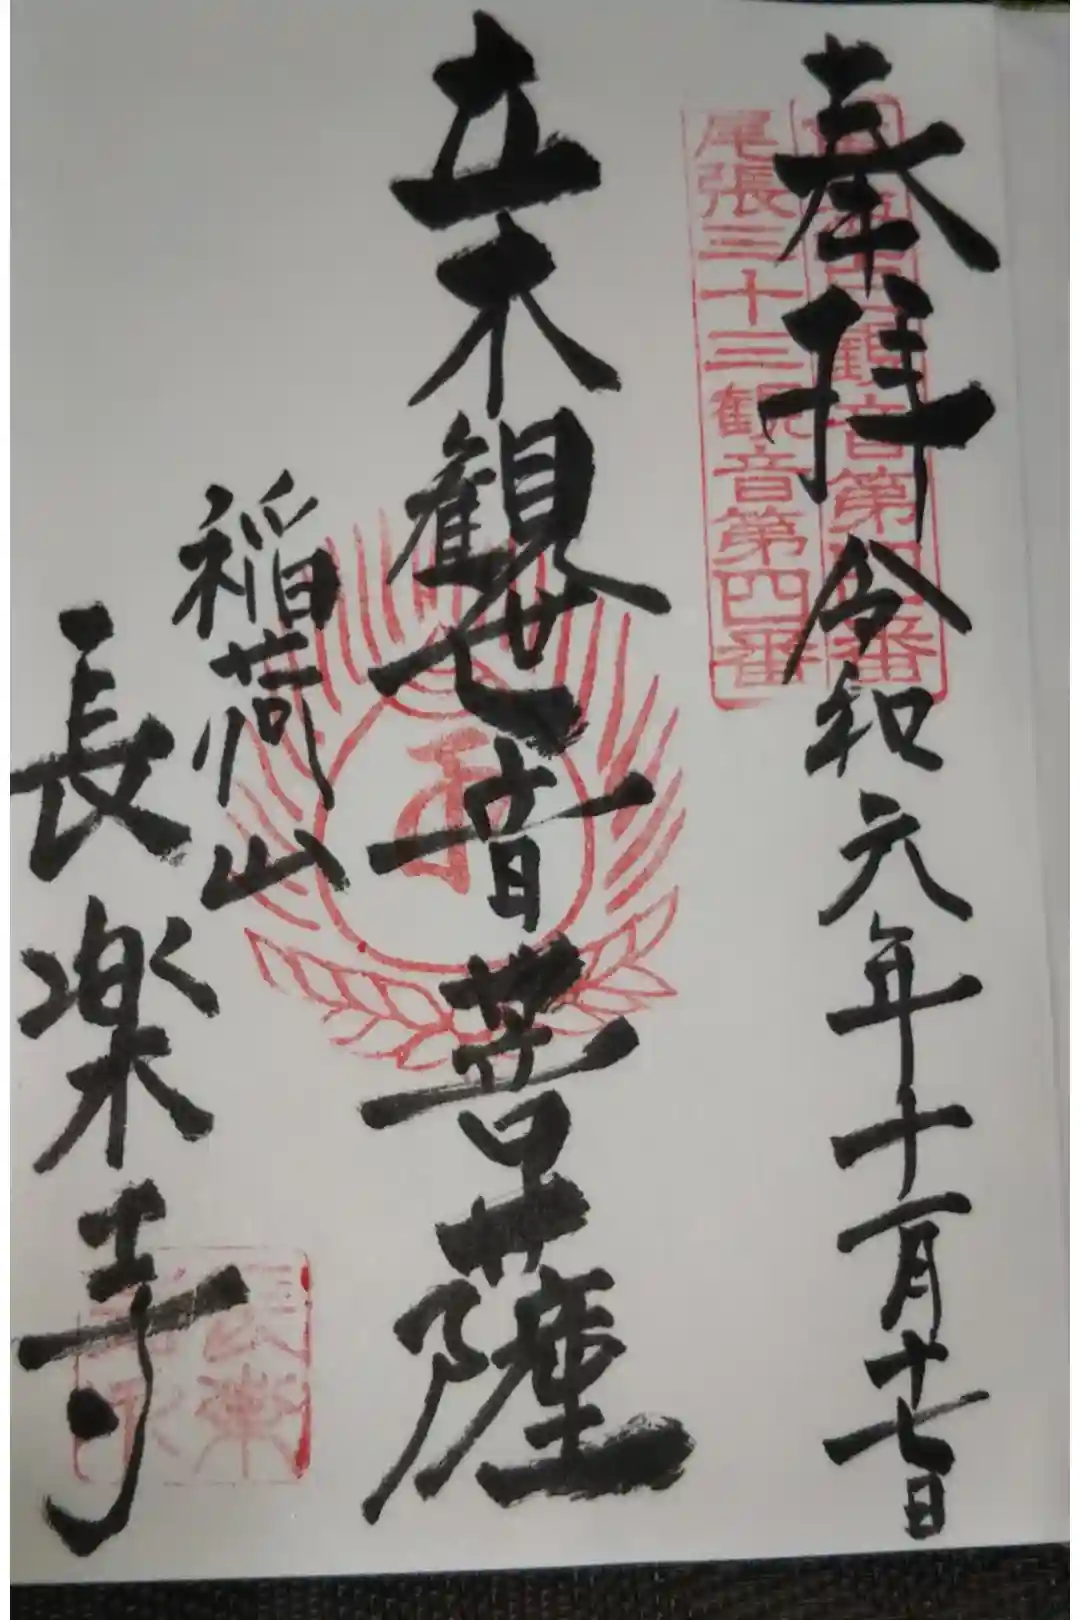 奉拝 令和六年十一月十七日
観音第四番
尾張三十三観音第四番
立木観世音菩薩
稲荷山
長楽寺